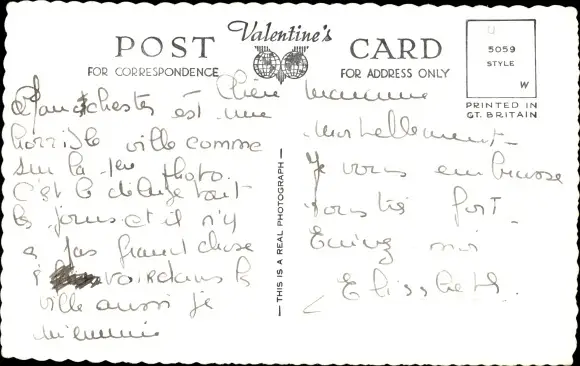 Valentine's
POST CARD
FOR CORRESPONDENCE
FOR ADDRESS ONLY
5059
STYLE
W
PRINTED IN
GT. BRITAIN
THIS IS A REAL PHOTOGRAPH
Chère maman
Manchester est une
horrible ville comme
sur la 1ère photo.
C'est le déluge tout
les jours et il n'y
a pas grand chose
à voir dans la
ville aussi je
m'ennuie
mortellement
Je vous embrasse
tous très fort.
Ecrivez moi
Elisabeth.